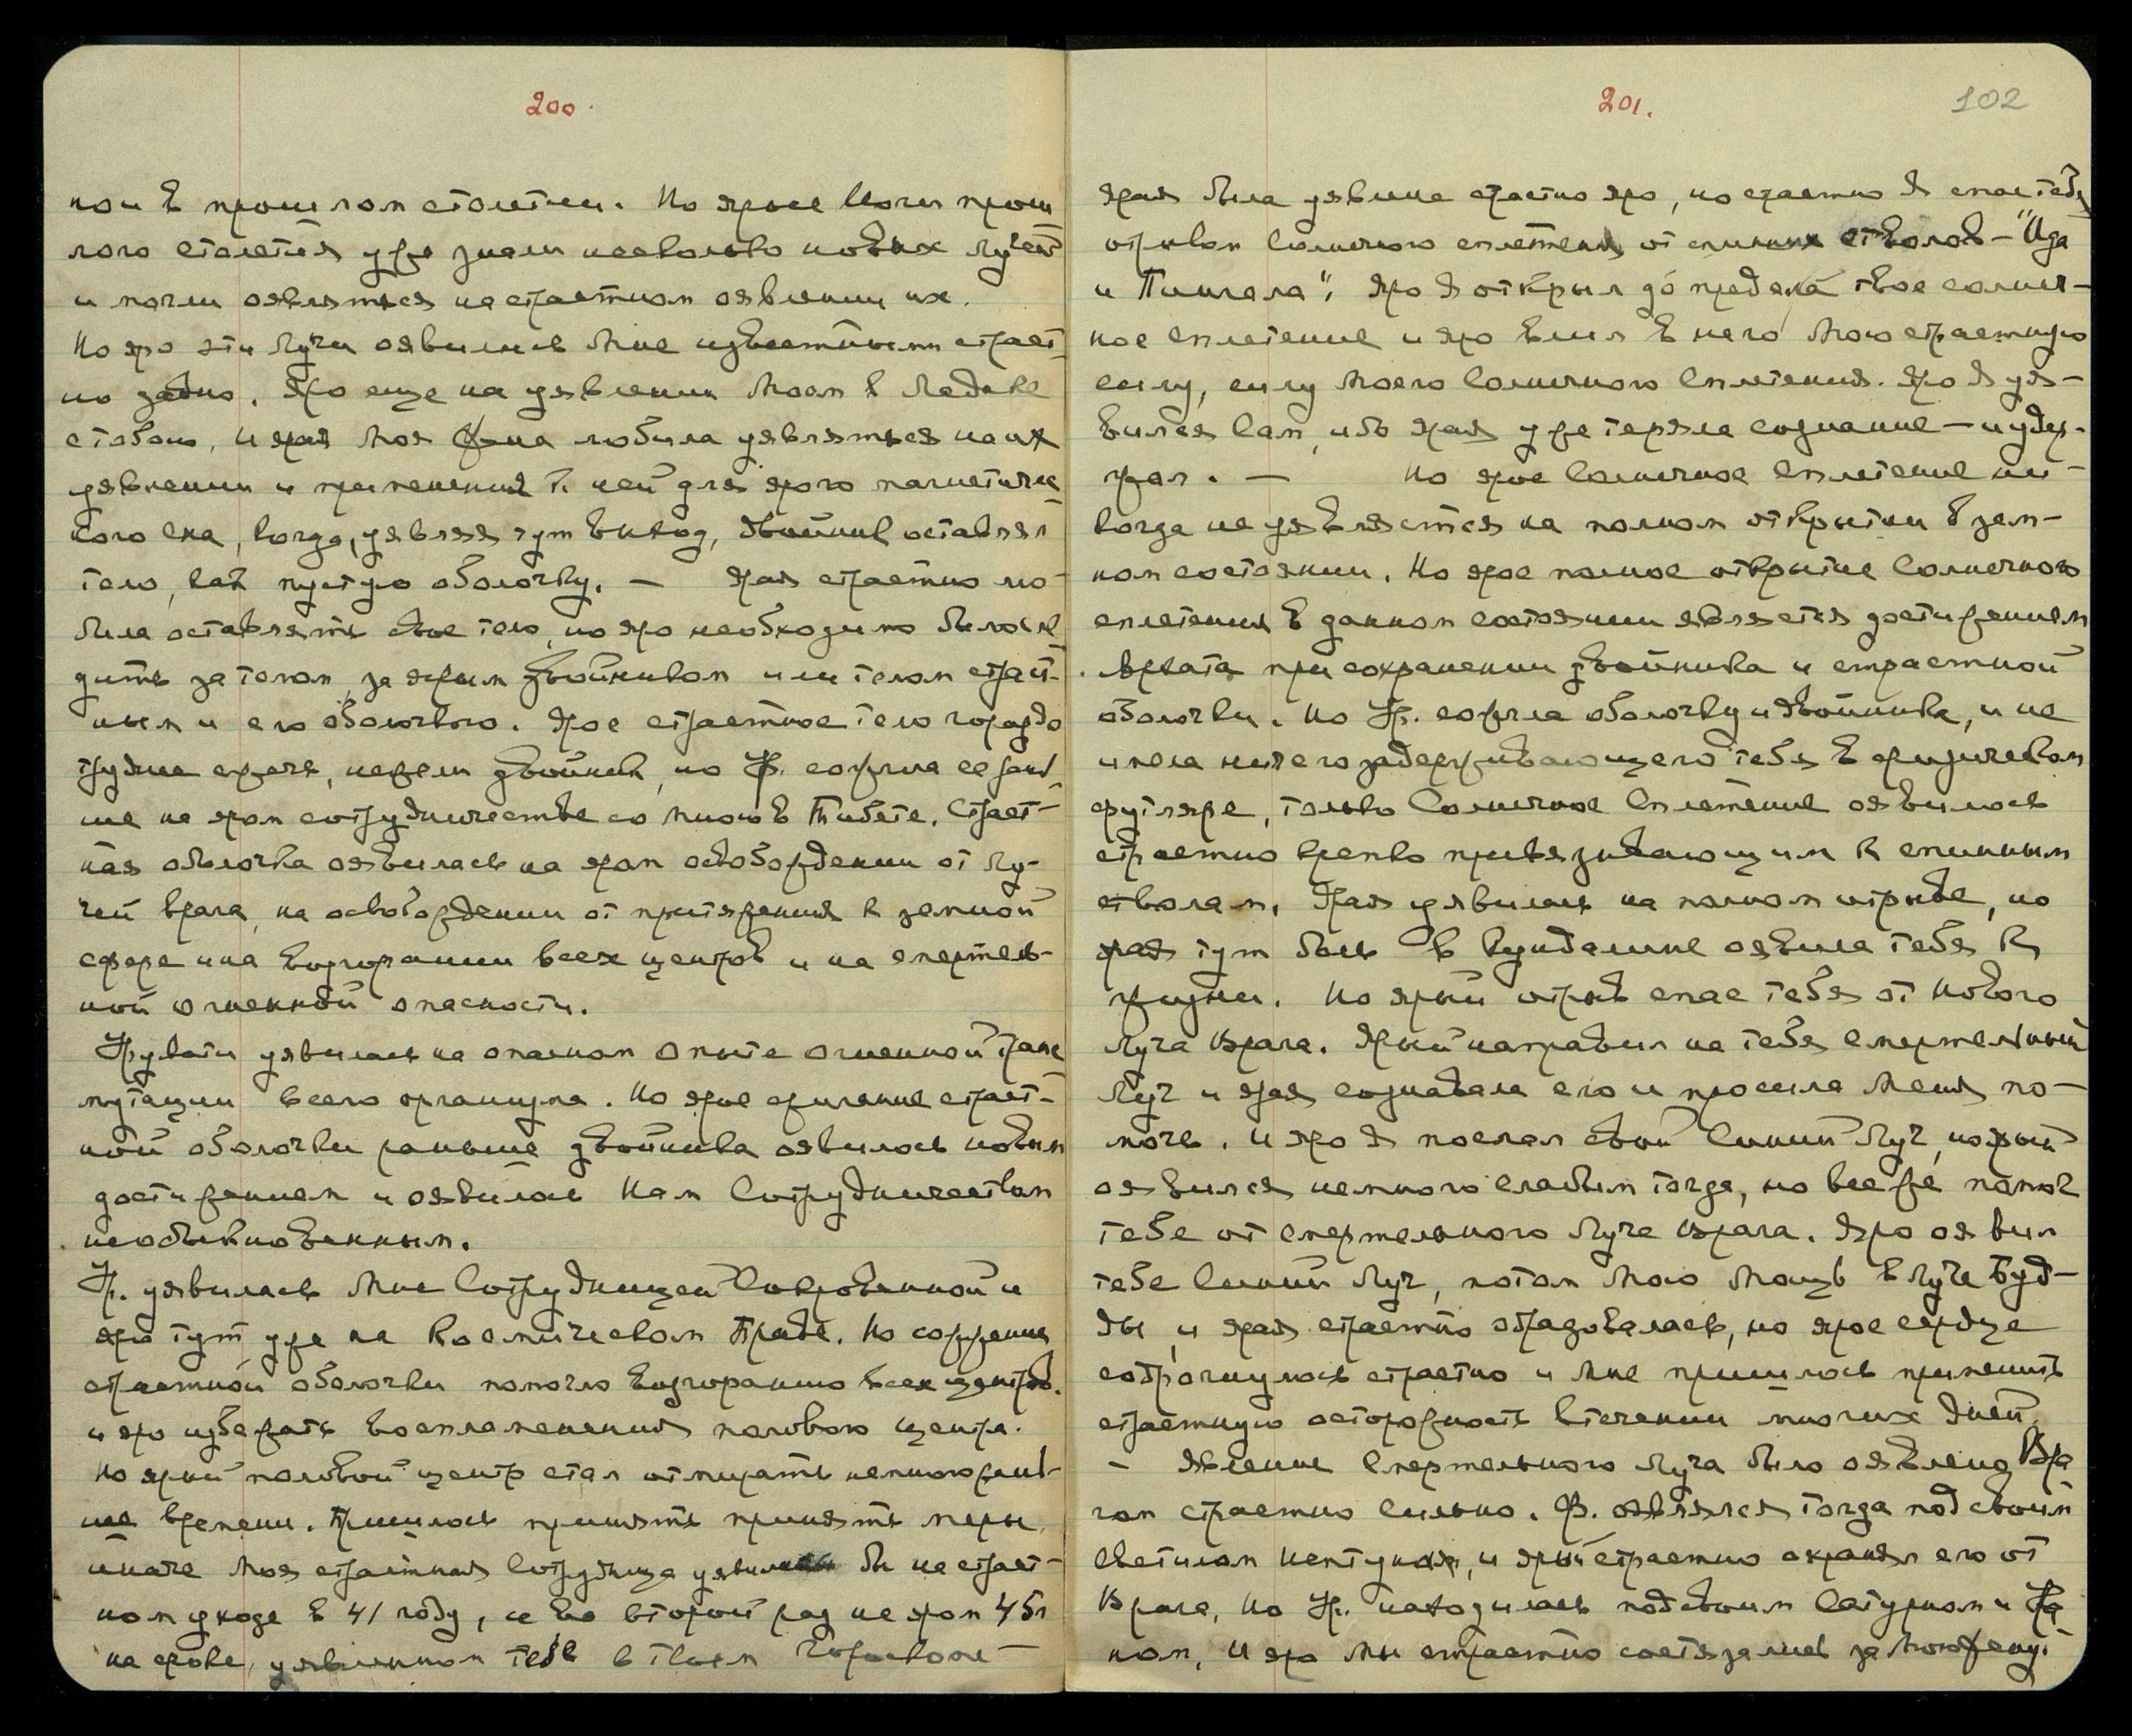 200.
ном в прошлом столетии. Но ярые Йоги прош
лого столетия уже знали несколько новых лучей
и могли оявляться на страстном оявлении их.
Но яро эти Лучи оявились Мне известными страст
но давно. Яро еще на уявлении Моем в Ладаке
с тобою, и ярая Моя Жена любила уявляться на их
уявлении и применения к ней для ярого магнетичес
кого сна, когда, уявляя тут выход, двойник оставлял
тело, как пустую оболочку. — Ярая страстно лю-
била оставлять свое тело, но яро необходимо было сле
дить за телом, за ярым двойником или телом страст-
ным и его оболочкою. Ярое страстное тело гораздо
труднее сжечь, нежели двойник, но Ур. сожгла ее рань
ше на яром сотрудничестве со Мною в Тибете. Страст-
ная оболочка оявилась на яром освобождении от Лу-
чей врага, на освобождении от притяжения к земной
сфере и на возгорании всех центров и на смертель-
ной огненной опасности.
Урувати уявилась на опасном опыте огненной транс
мутации всего организма. Но ярое сжигание страст-
ной оболочки раньше двойника оявилось новым
достижением и оявилось Нам Сотрудничеством
необыкновенным.
Ур. уявилась Мне Сотрудницей Сокровенной и
яро тут уже на Космическом Праве. Но сожжение
страстной оболочки помогло возгоранию всех центров.
и яро избежать воспламенения полового центра.
Но ярый половой центр стал отмирать немного рань-
ше времени. Пришлось принять принять меры,
иначе Моя страстная Сотрудница уявилась бы на страст-
ном уходе в 41 году, и во второй раз на яром 45г
на сроке, уявленном тебе в твоем Гороскопе —
201.
102
Ярая была уявлена страстно яро, но страстно Я спас тебя
отрывом Солнечного сплетения от спинных стволов — "Ида
и Пингала". Яро Я открыл до предела твое солнеч-
ное сплетение и яро влил в него Мою страстную
силу, силу Моего Солнечного Сплетения. Яро Я уя-
вился Сам, ибо Ярая уже теряла сознание — и удер-
жал. — Но ярое Солнечное Сплетение ни-
когда не уявляется на полном открытии в зем-
ном состоянии. Но ярое полное открытие Солнечного
сплетения в данном состоянии является достижением
Архата при сохранении двойника и страстной
оболочки. Но Ур. сожгла оболочку и двойника, и не
имела ничего задерживающего тебя в физическом
футляре, только Солнечное Сплетение оявилось
страстно крепко привязывающим к спинным
стволам. Ярая уявилась на полном отрыве, но
ярая тут боль в Кундалине оявила тебя к
жизни. Но ярый отрыв спас тебя от нового
Луча Врага. Ярый направил на тебя смертельный
Луч и ярая сознавала его и просила Меня по-
мочь. И яро Я послал свой Синий Луч, но ярый
оявился немного слабым тогда, но все же помог
тебе от смертельного Луча Врага. Яро оявил
тебе Синий Луч, потом Мою Мощь в Луче Буд-
ды, и ярая страстно обрадовалась, но ярое сердце
содрогнулось страстно и Мне пришлось применить
страстную осторожность в течении многих дней.
— Явление Смертельного Луча было оявлено Вра
гом страстно сильно. Ф. оявлялся тогда под своим
Светилом Нептуном, и ярый страстно охранял его от
Врага, но Ур. находилась под своим Сатурном и
ном, И яро Мы страстно состязались за Мою Жену.